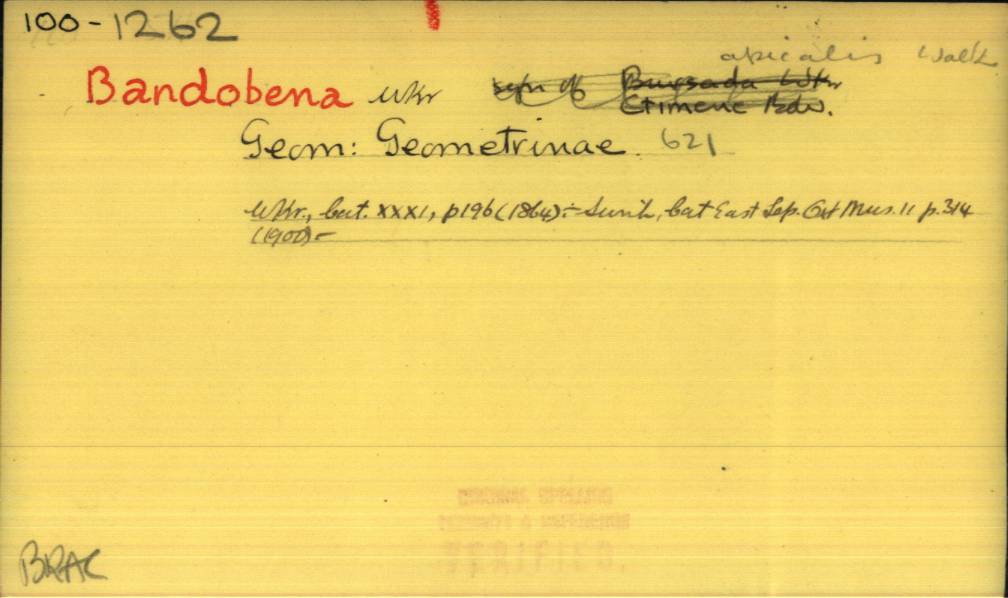 100-1262
apicalis Walk
Bandobena Wkr syn of Bursada Wkr
Etimene Bdv.
Geom: Geometrinae. 621
Wkr., Cat. XXXI, p196 (1864):- Swinh, Cat East Lep. Oxf Mus. 11 p.314
(1900)-
ORIGINAL SPELLING
VERIFIED.
BRAC